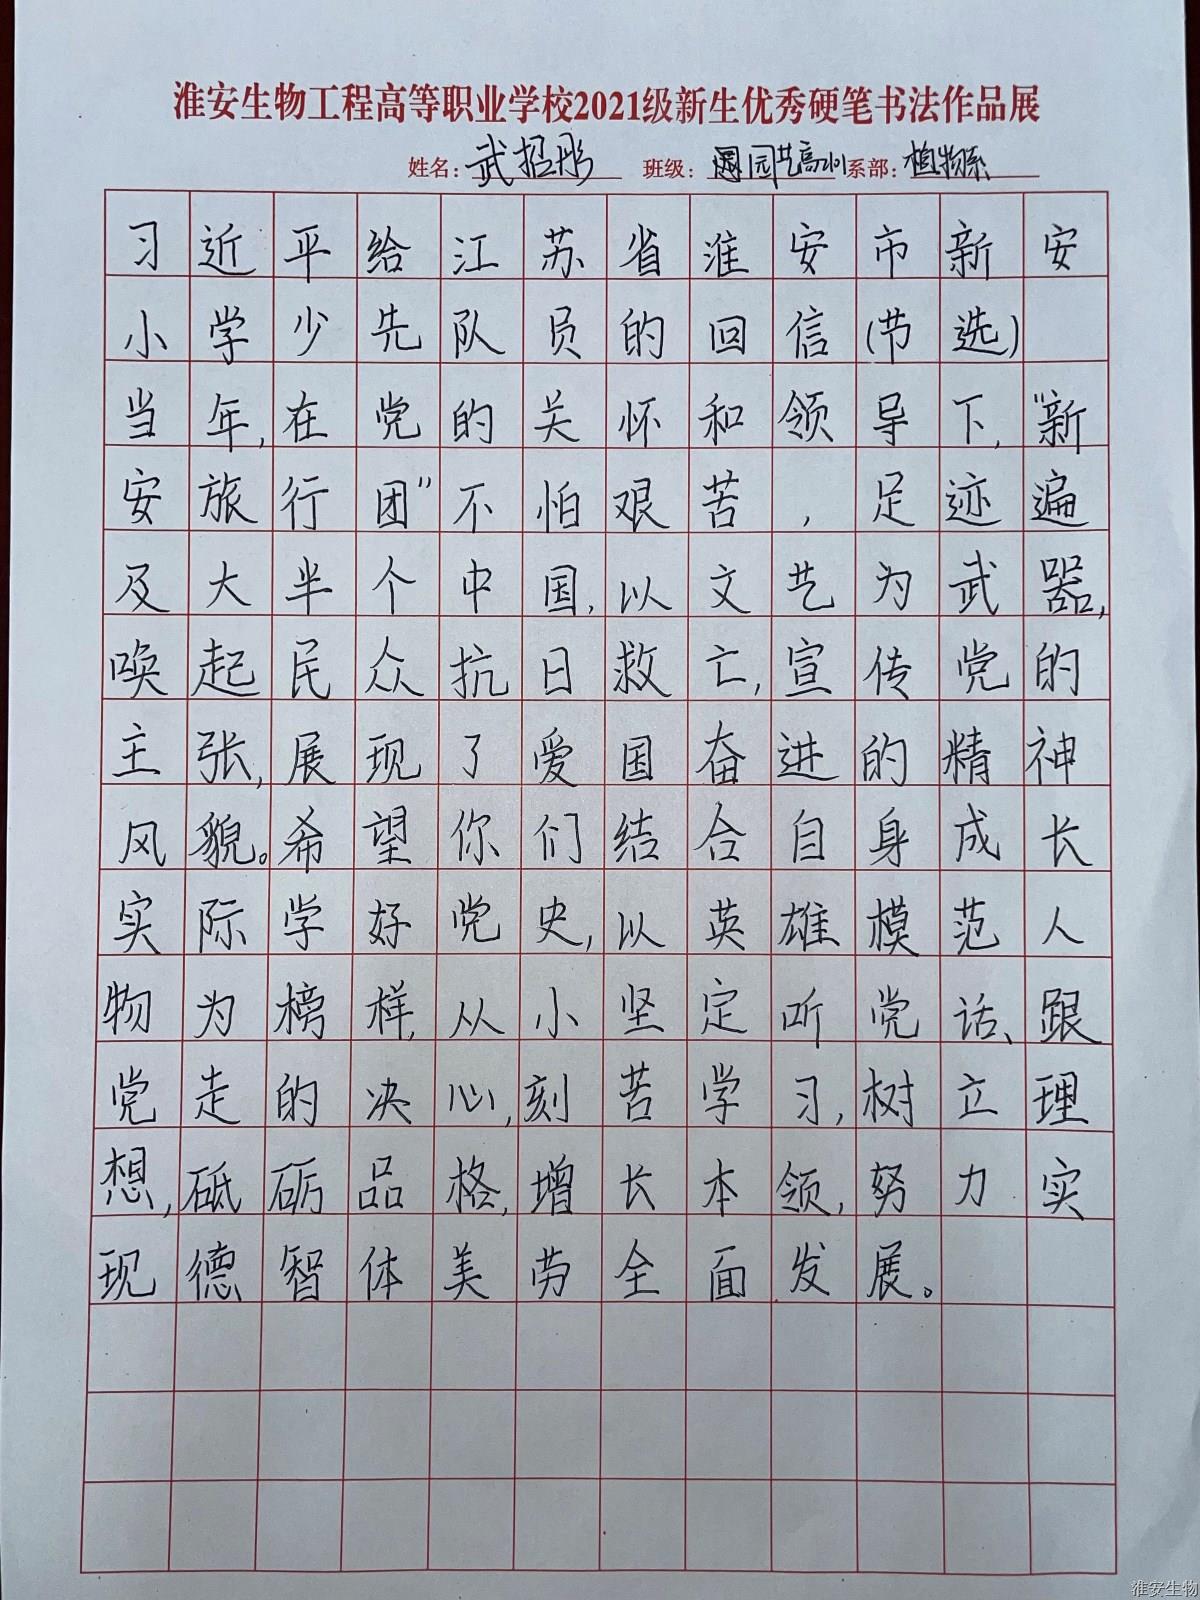 淮安生物工程高等职业学校2021级新生优秀硬笔书法作品展
姓名：武招彤 班级：园艺高2101 系部：植物系
习近平给江苏省淮安市新安
小学少先队员的回信(节选)
当年,在党的关怀和领导下,“新
安旅行团”不怕艰苦,足迹遍
及大半个中国,以文艺为武器,
唤起民众抗日救亡,宣传党的
主张,展现了爱国奋进的精神
风貌。希望你们结合自身成长
实际学好党史,以英雄模范人
物为榜样,从小坚定听党话、跟
党走的决心,刻苦学习,树立理
想,砥砺品格,增长本领,努力实
现德智体美劳全面发展。
淮安生物